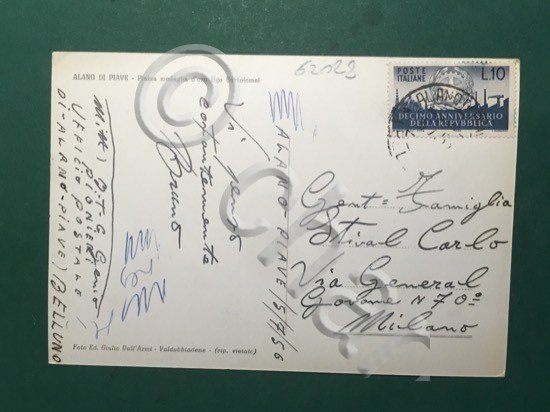 ALANO DI PIAVE - Piazza medaglia d'oro Ugo Bartolomei
62029
POSTE ITALIANE L.10
DECIMO ANNIVERSARIO
DELLA REPVBBLICA
ALANO PIAVE 5/7/56
Vi penso
costantemente
Bruno
PIONIERI
UFFICIO POSTALE
DI-ALANO-PIAVE) (BELLUNO
Gent= Famiglia
Stival Carlo
Via General
Govone N 70º
Milano
Foto Ed. Giulio Dall'Armi - Valdobbiadene - (rip. vietata)
©